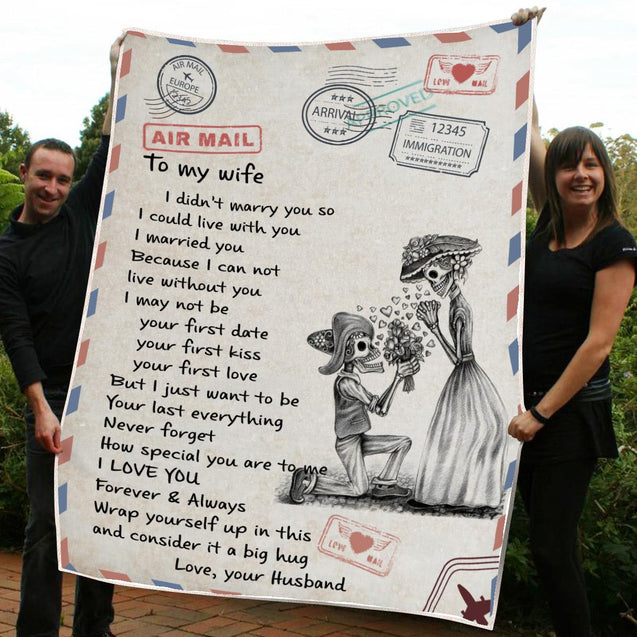 AIR MAIL
EUROPE
12345
ARRIVAL
APPROVED
LOVE MAIL
12345
IMMIGRATION
AIR MAIL
To my wife
I didn't marry you so
I could live with you
I married you
Because I can not
live without you
I may not be
your first date
your first kiss
your first love
But I just want to be
Your last everything
Never forget
How special you are to me
I LOVE YOU
Forever & Always
Wrap yourself up in this
and consider it a big hug
Love, your Husband
LOVE MAIL